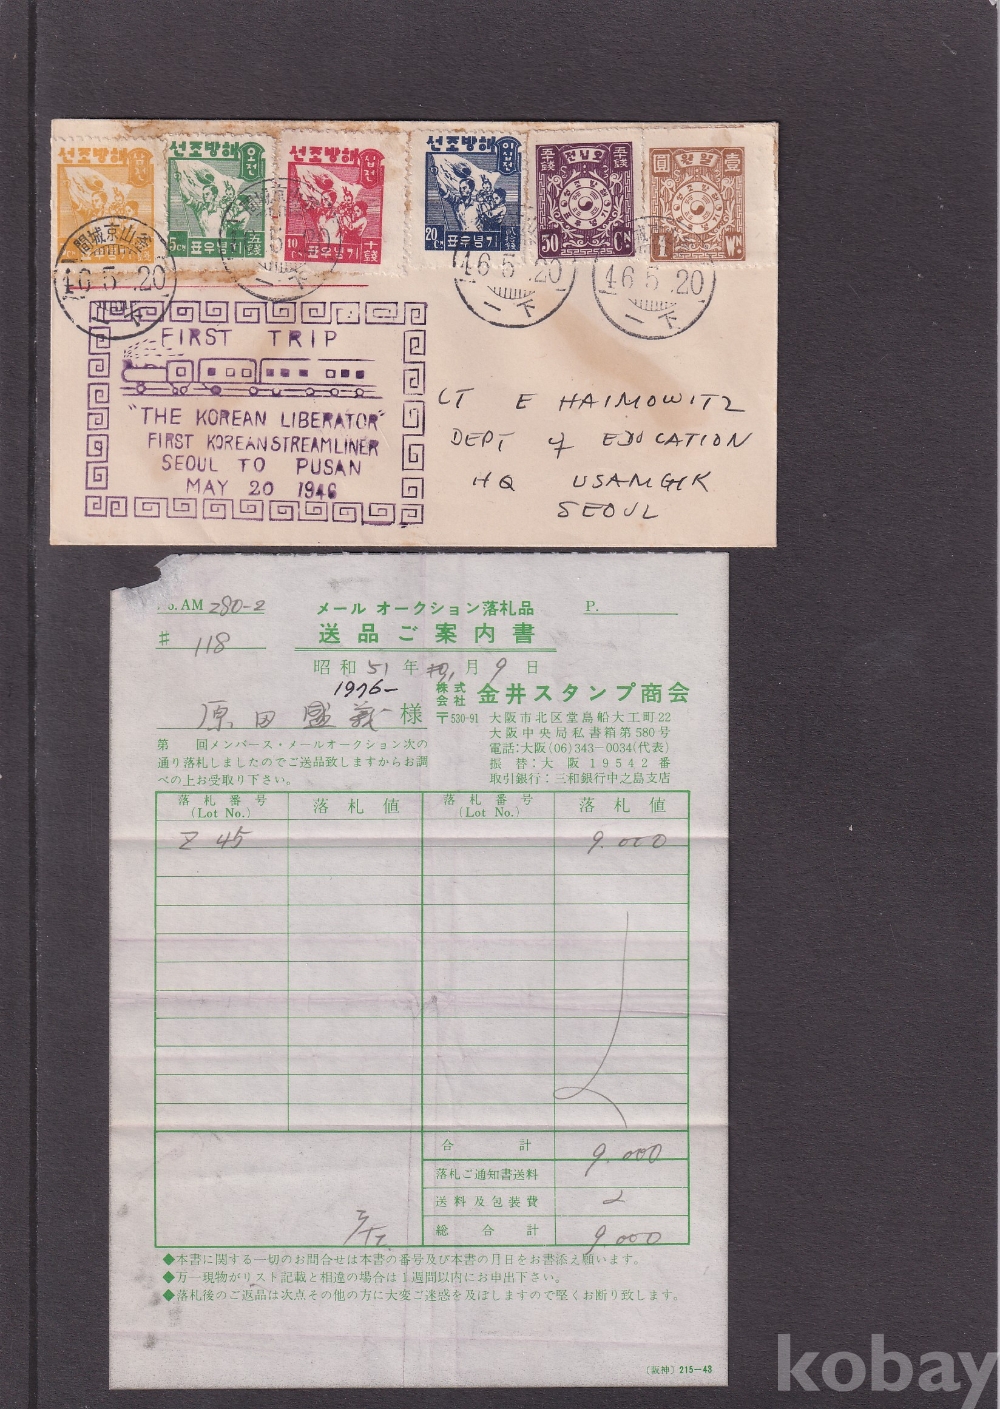 해방조선
해방조선 오전
5 CN. 표우념기 五錢
해방조선 십전
10 CN. 표우념기 十錢
해방조선 이십전
20 CN. 표우념기 貳拾錢
五十錢 오십전 五十錢
50 CN
圓 일원 壹
1 WN.
46.5.20
46.5.20
46.5.20
FIRST TRIP
"THE KOREAN LIBERATOR"
FIRST KOREAN STREAMLINER
SEOUL TO PUSAN
MAY 20 1946
LT E HAIMOWITZ
DEPT of EDUCATION
HQ USAMGIK
SEOUL
AM 280-2
メール オークション落札品
P.
# 118
送品ご案内書
昭和 51 年 月 9 日
1976-
株式会社 金井スタンプ商会
原田盛義 様
〒530-91 大阪市北区堂島船大工町22
大阪中央局私書箱第580号
電話:大阪(06)343-0034(代表)
振替:大阪19542番
取引銀行:三和銀行中之島支店
第 回メンバース・メールオークション次の
通り落札しましたのでご送品致しますからお調
べの上お受取り下さい。
落札番号 (Lot No.) 落札値 落札番号 (Lot No.) 落札値
Z 45 9.000
合計 9.000
落札ご通知書送料
送料及包装費
総合計 9.000
◆本書に関する一切のお問合せは本書の番号及び本書の月日をお書添え願います。
◆万一現物がリスト記載と相違の場合は1週間以内にお申出下さい。
◆落札後のご返品は次点その他の方に大変ご迷惑を及ぼしますので堅くお断り致します。
〔阪神〕215-43
kobay